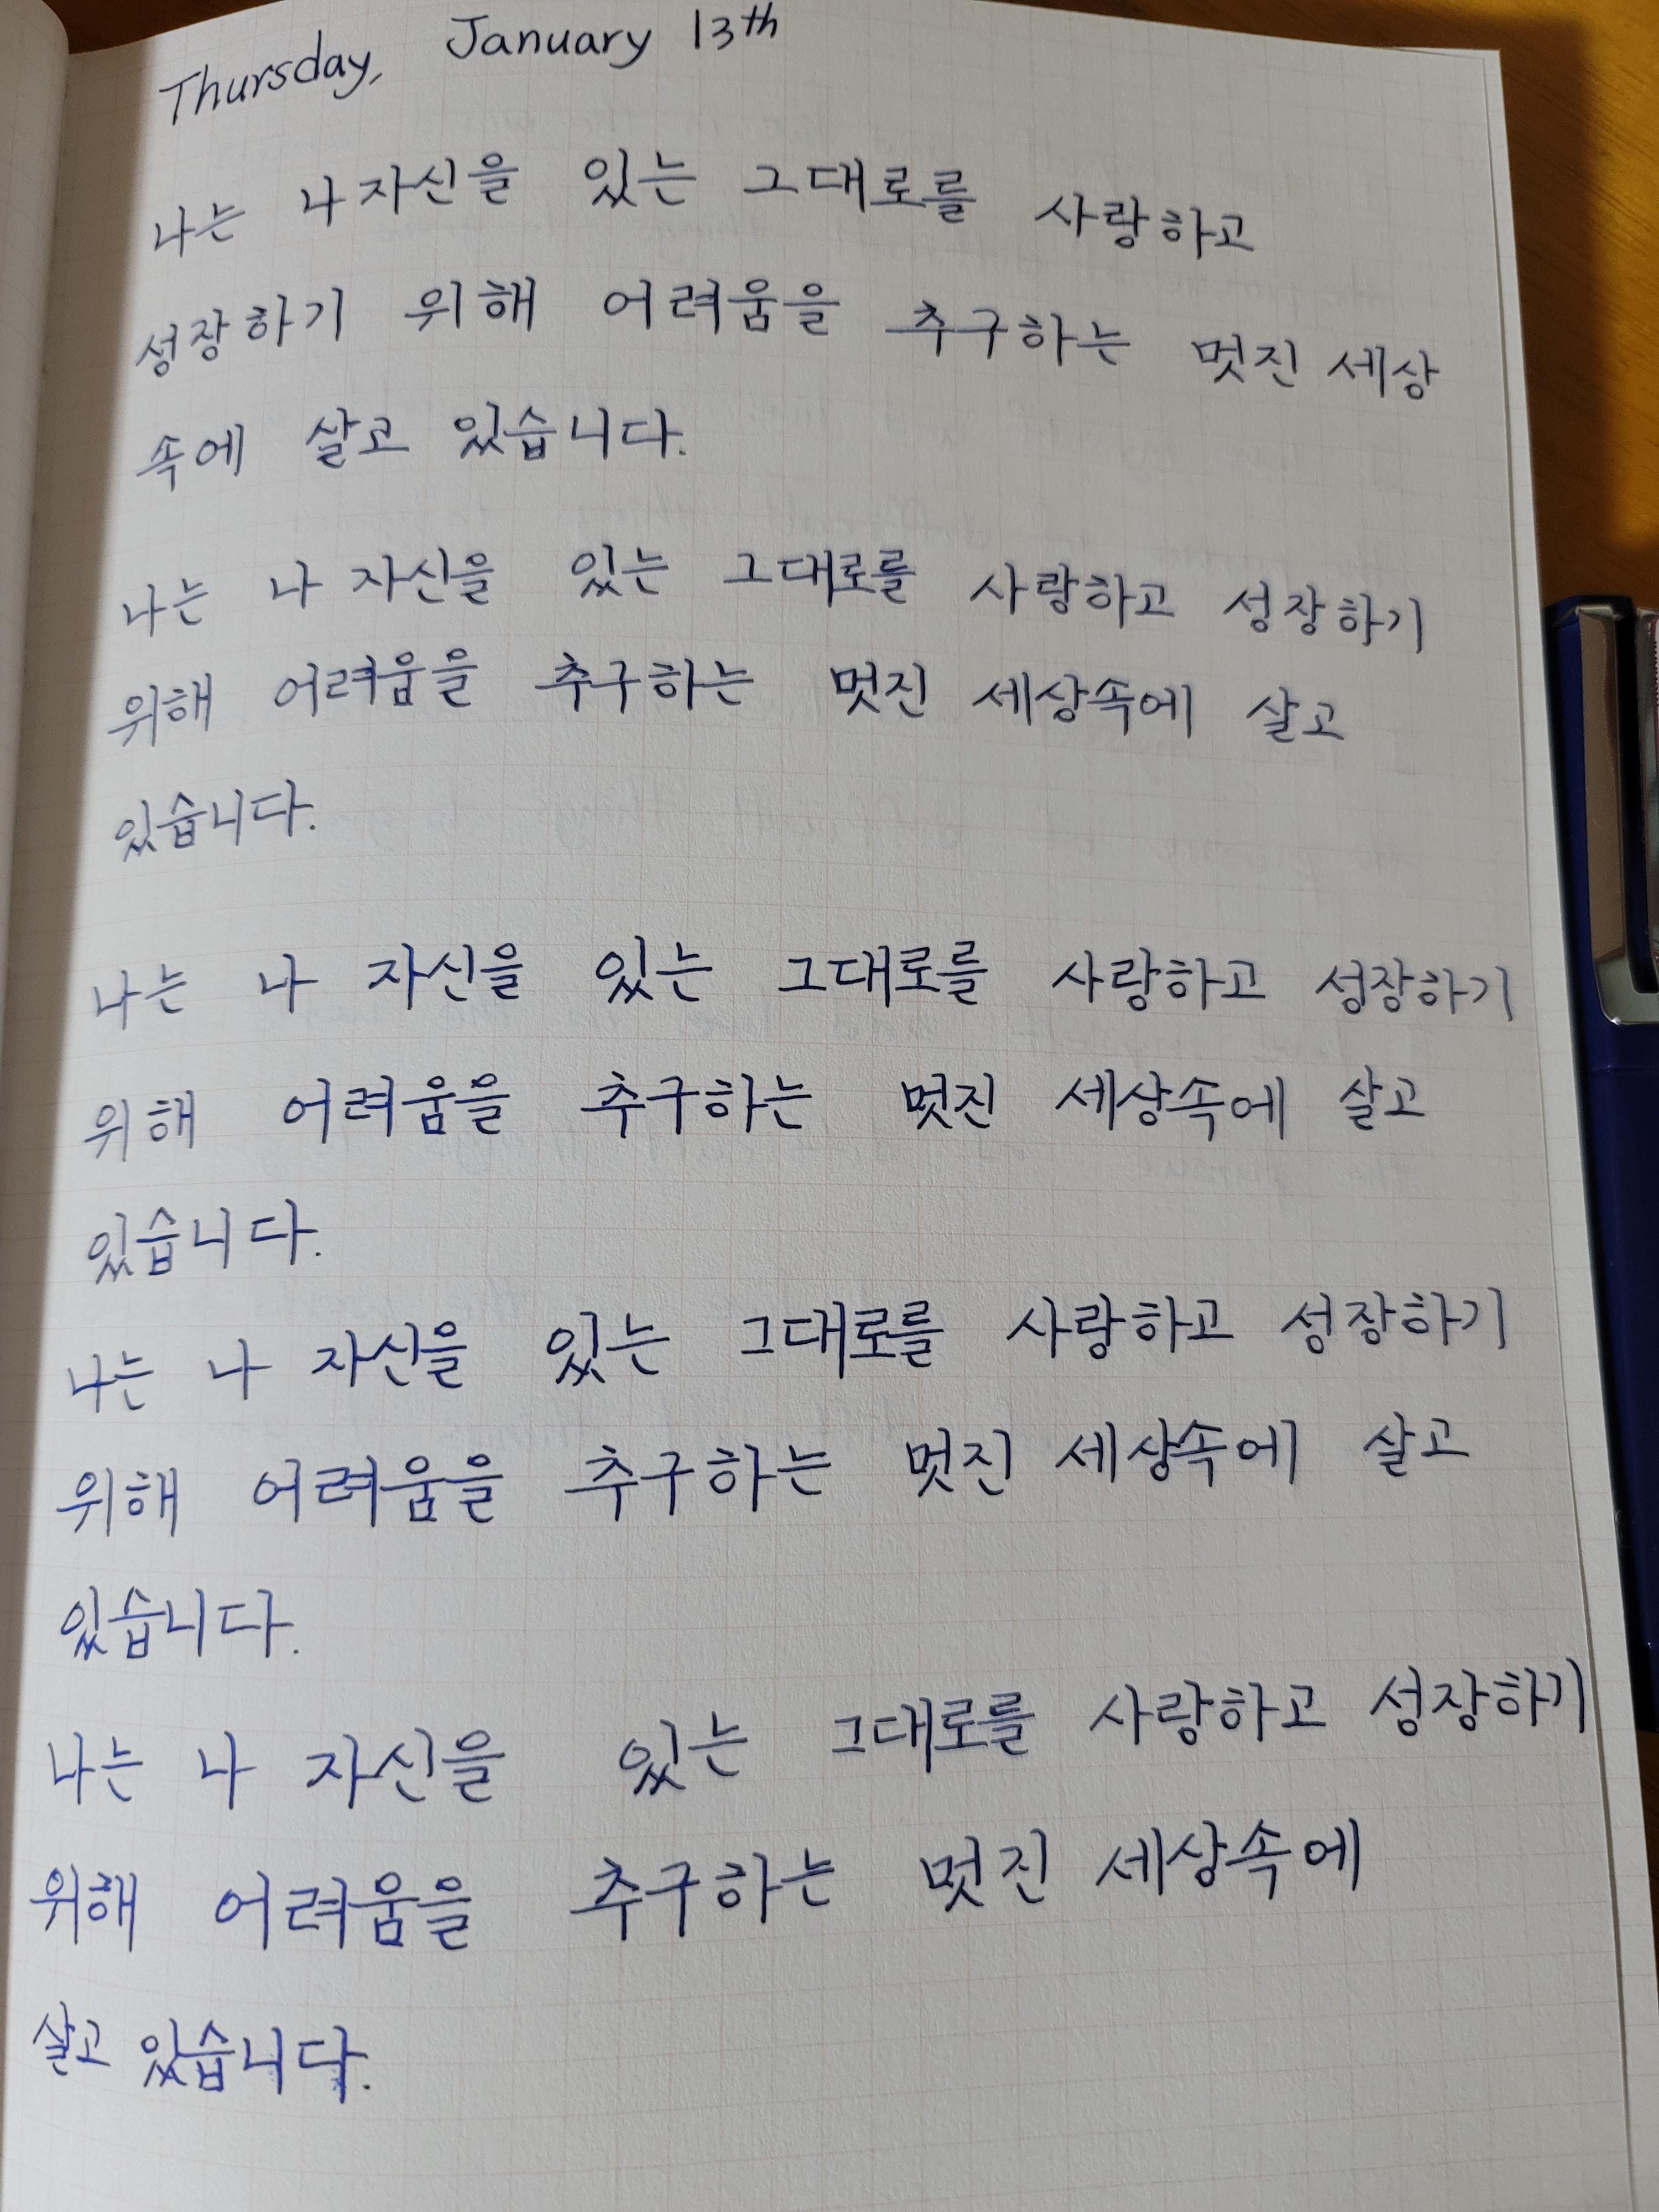 Thursday, January 13th
나는 나 자신을 있는 그대로를 사랑하고
성장하기 위해 어려움을 추구하는 멋진 세상
속에 살고 있습니다.
나는 나 자신을 있는 그대로를 사랑하고 성장하기
위해 어려움을 추구하는 멋진 세상속에 살고
있습니다.
나는 나 자신을 있는 그대로를 사랑하고 성장하기
위해 어려움을 추구하는 멋진 세상속에 살고
있습니다.
나는 나 자신을 있는 그대로를 사랑하고 성장하기
위해 어려움을 추구하는 멋진 세상속에 살고
있습니다.
나는 나 자신을 있는 그대로를 사랑하고 성장하기
위해 어려움을 추구하는 멋진 세상속에
살고 있습니다.